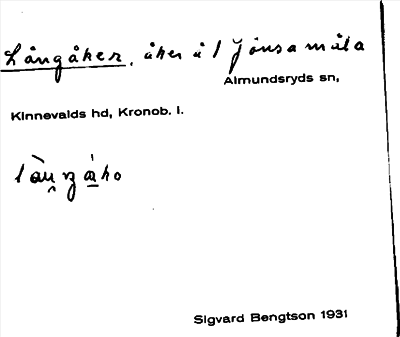 Långåker, åker å 1 Jönsamåla
Almundsryds sn,
Kinnevalds hd, Kronob. l.
Sigvard Bengtson 1931